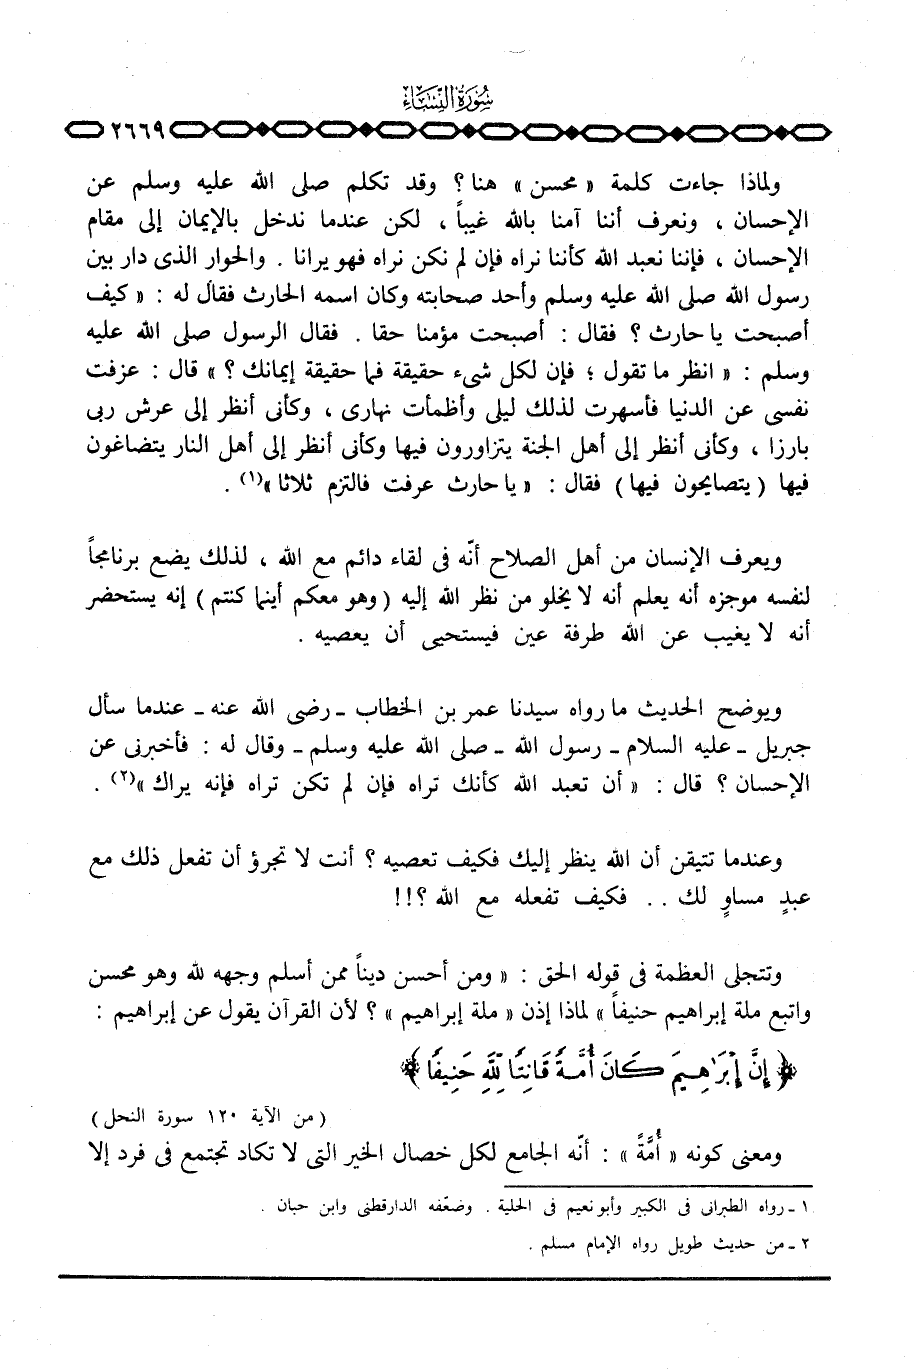 سُورَةُ النِّسَاءِ
٢٦٦٩
ولماذا جاءت كلمة « محسن » هنا ؟ وقد تكلم صلى الله عليه وسلم عن
الإحسان ، ونعرف أننا آمنا بالله غيباً ، لكن عندما ندخل بالإيمان إلى مقام
الإحسان ، فإننا نعبد الله كأننا نراه فإن لم نكن نراه فهو يرانا . والحوار الذى دار بين
رسول الله صلى الله عليه وسلم وأحد صحابته وكان اسمه الحارث فقال له : « كيف
أصبحت يا حارث ؟ فقال : أصبحت مؤمنا حقا . فقال الرسول صلى الله عليه
وسلم : « انظر ما تقول ؛ فإن لكل شىء حقيقة فما حقيقة إيمانك ؟ » قال : عزفت
نفسى عن الدنيا فأسهرت لذلك ليلى وأظمأت نهارى ، وكأنى أنظر إلى عرش ربى
بارزا ، وكأنى أنظر إلى أهل الجنة يتزاورون فيها وكأنى أنظر إلى أهل النار يتضاغون
فيها ( يتصايحون فيها ) فقال : « يا حارث عرفت فالتزم ثلاثا »(١) .
ويعرف الإنسان من أهل الصلاح أنّه فى لقاء دائم مع الله ، لذلك يضع برنامجاً
لنفسه موجزه أنه يعلم أنه لا يخلو من نظر الله إليه ( وهو معكم أينما كنتم ) إنه يستحضر
أنه لا يغيب عن الله طرفة عين فيستحيى أن يعصيه .
ويوضح الحديث ما رواه سيدنا عمر بن الخطاب ـ رضى الله عنه ـ عندما سأل
جبريل ـ عليه السلام ـ رسول الله ـ صلى الله عليه وسلم ـ وقال له : فأخبرنى عن
الإحسان ؟ قال : « أن تعبد الله كأنك تراه فإن لم تكن تراه فإنه يراك »(٢) .
وعندما تتيقن أن الله ينظر إليك فكيف تعصيه ؟ أنت لا تجرؤ أن تفعل ذلك مع
عبدٍ مساوٍ لك .. فكيف تفعله مع الله ؟!!
وتتجلى العظمة فى قوله الحق : « ومن أحسن ديناً ممن أسلم وجهه لله وهو محسن
واتبع ملة إبراهيم حنيفاً » لماذا إذن « ملة إبراهيم » ؟ لأن القرآن يقول عن إبراهيم :
﴿ إِنَّ إِبْرَٰهِيمَ كَانَ أُمَّةً قَانِتًا لِّلَّهِ حَنِيفًا ﴾
( من الآية ١٢٠ سورة النحل )
ومعنى كونه « أُمَّةً » : أنّه الجامع لكل خصال الخير التى لا تكاد تجتمع فى فرد إلا
١ ـ رواه الطبرانى فى الكبير وأبو نعيم فى الحلية . وضعّفه الدارقطنى وابن حبان .
٢ ـ من حديث طويل رواه الإمام مسلم .